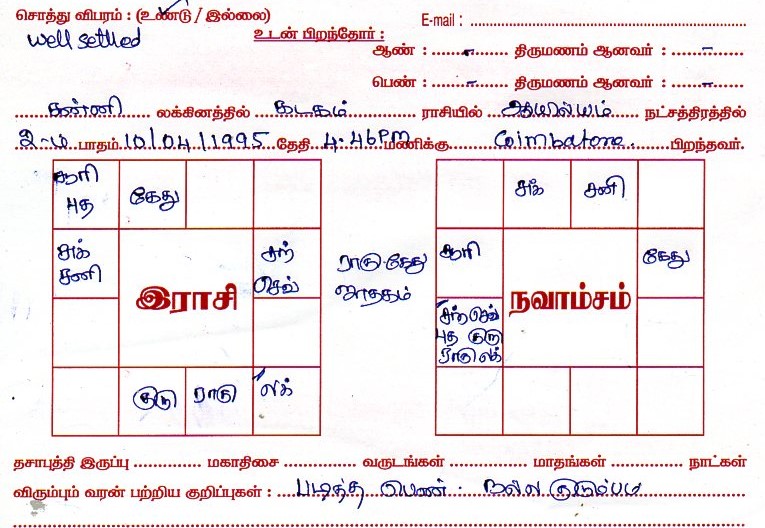 சொத்து விபரம் : (உண்டு / இல்லை)
E-mail :
well settled
உடன் பிறந்தோர் :
ஆண் : - திருமணம் ஆனவர் : -
பெண் : - திருமணம் ஆனவர் : -
கன்னி லக்கினத்தில் கடகம் ராசியில் ஆயில்யம் நட்சத்திரத்தில்
2-ம் பாதம் 10/04/1995 தேதி 4.46PM மணிக்கு Coimbatore. பிறந்தவர்.
சூரி புத
கேது
சுக் சனி
சந் செவ்
இராசி
குரு
ராகு
லக்
ராகு-கேது
ஜாதகம்
சுக்
சனி
சூரி
கேது
நவாம்சம்
சந் செவ்
புத குரு
ராகு லக்
தசாபுத்தி இருப்பு மகாதிசை வருடங்கள் மாதங்கள் நாட்கள்
விரும்பும் வரன் பற்றிய குறிப்புகள் : படித்த பெண் . நல்ல குடும்பம்